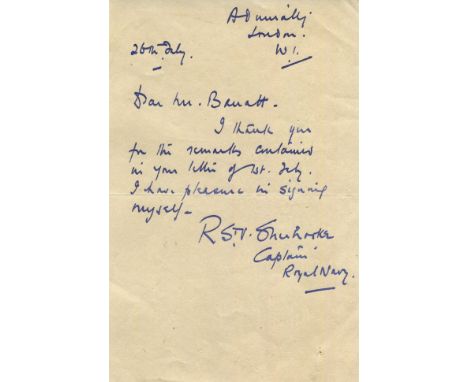 Admiralty
London.
W.1.
26th. July.
Dear Mr. Barratt.
I thank you
for the remarks contained
in your letter of 1st. July.
I have pleasure in signing
myself—
R St.V. Sherbrooke
Captain
Royal Navy.